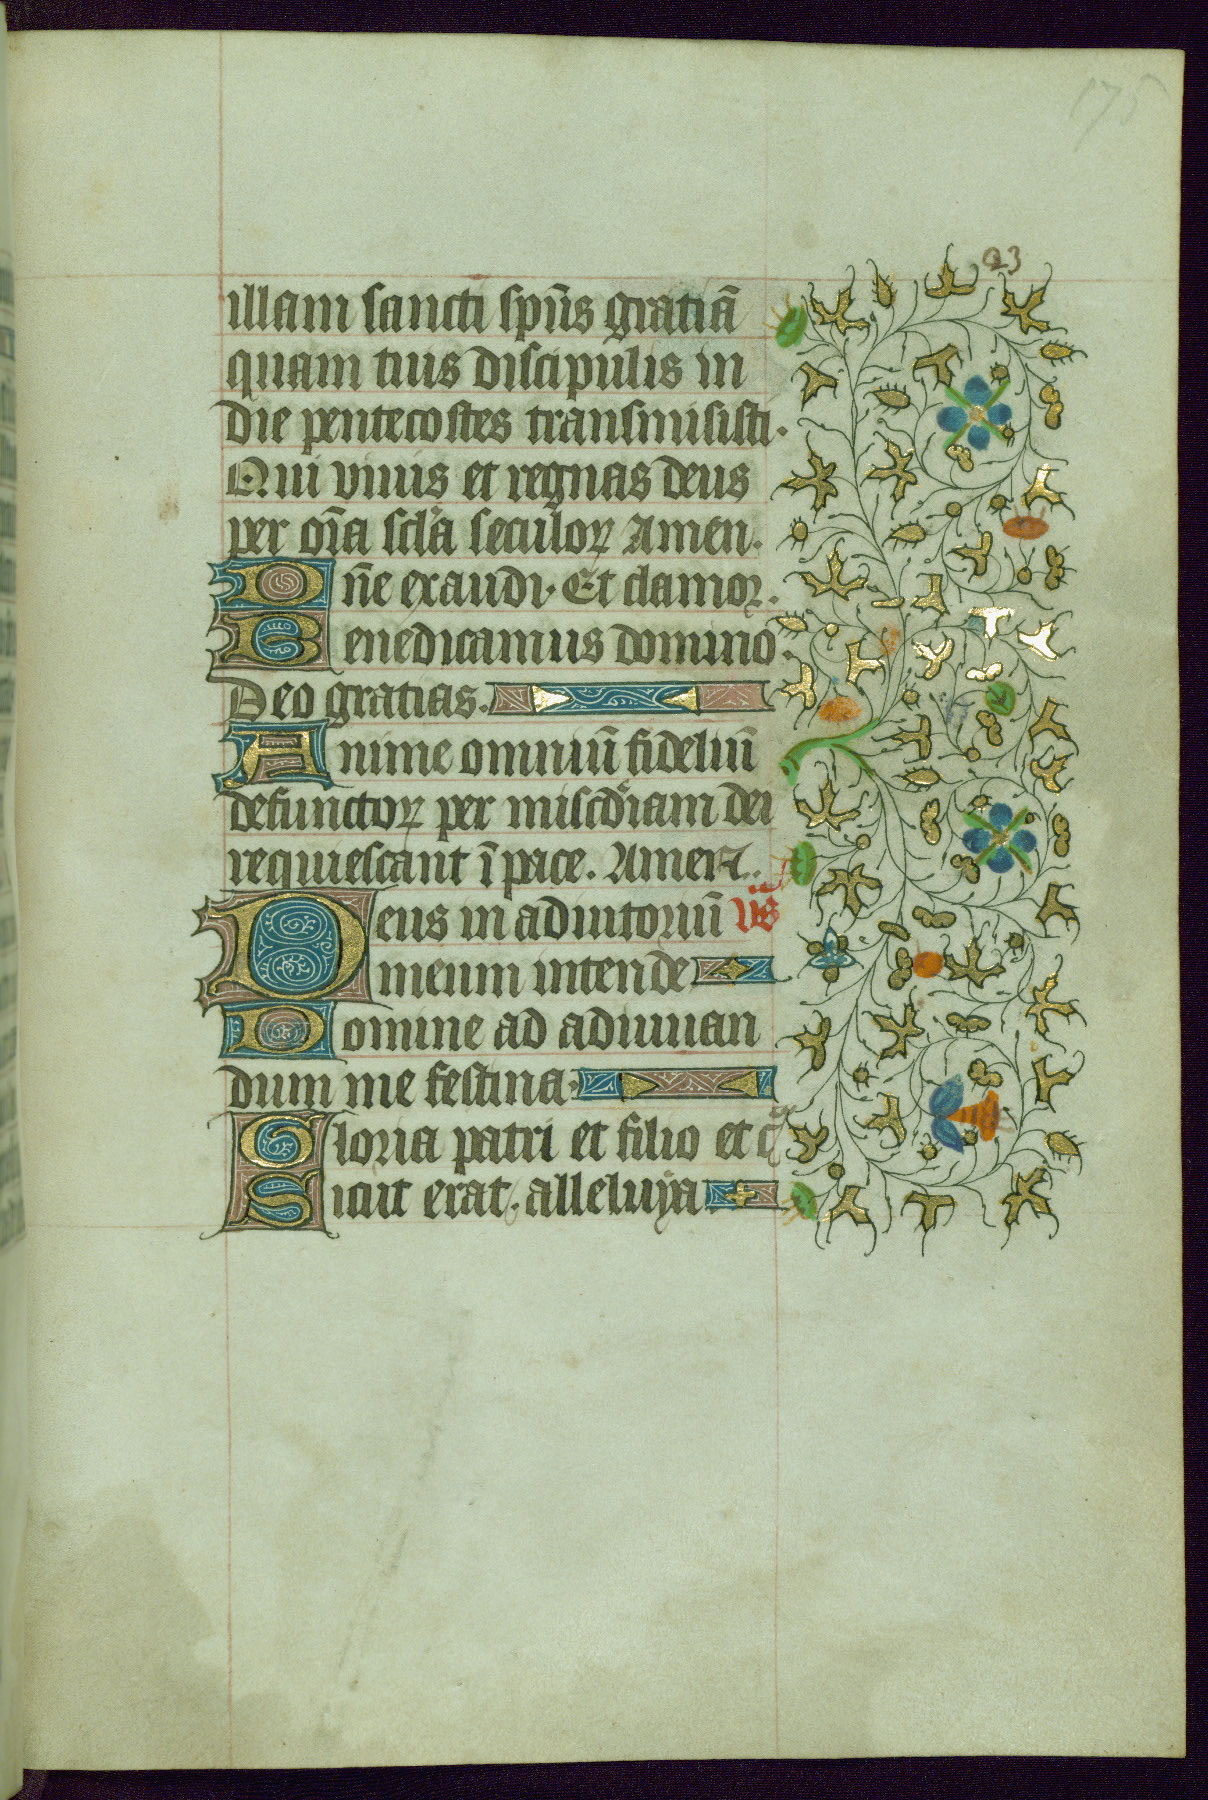 175
23
illam sancti sp̄us gratiā
quam tuis discipulis in
die pentecostes transmisisti.
Qui viuis et regnas deus
per oīa scl'a seculoꝝ Amen.
Dn̄e exaudi. Et clamoꝛ.
Benedicamus domino.
Deo gratias.
Anime omniū fideliū
defunctoꝝ per misc̄diam dei
requiescant ī pace. Amen.
Deus in adiutoriū vs̄
meum intende
Domine ad adiuuan
dum me festina.
Gloria patri et filio et
Sicut erat. alleluya